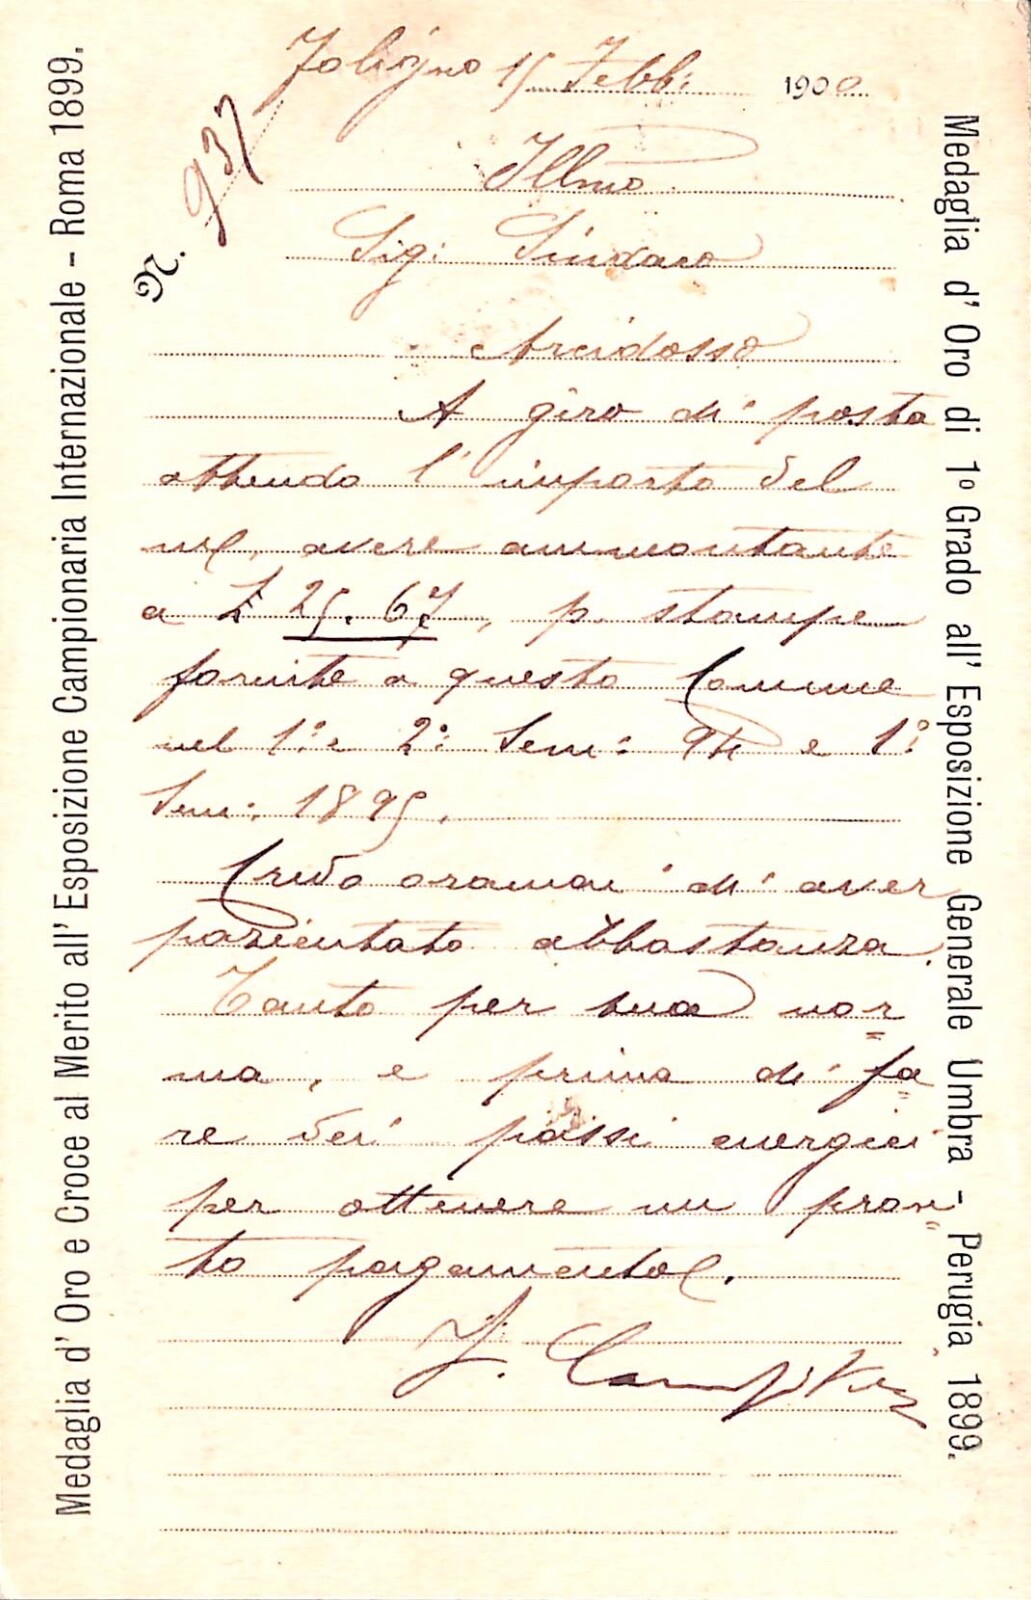 Foligno 15 Febb: 1900
N. 937
Illmo
Sig: Sindaco
Arcidosso
A giro di posta
attendo l'importo del
mc. avere ammontante
a £ 25.67, p. stampe
fornite a questo Comune
nel 1° e 2° Sem: 94 e 1°
Sem: 1895.
Credo oramai di aver
pazientato abbastanza.
Tanto per sua nor=
ma, e prima di fa=
re dei passi energici
per ottenere un pron=
to pagamento.
F. Campitelli
Medaglia d'Oro e Croce al Merito all'Esposizione Campionaria Internazionale - Roma 1899.
Medaglia d'Oro di 1° Grado all'Esposizione Generale Umbra - Perugia 1899.